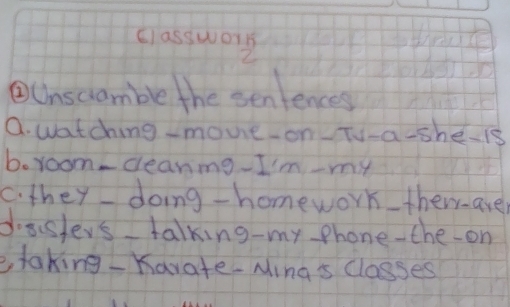 Classwork
2
① Unscramble the sentences
a. watching - movie - on - TV - a - she - is
b. room - cleaning - I'm - my
c. they - doing - homework - their - aren
d. sisters - talking - my - phone - the - on
e. taking - Karate - Mina's classes